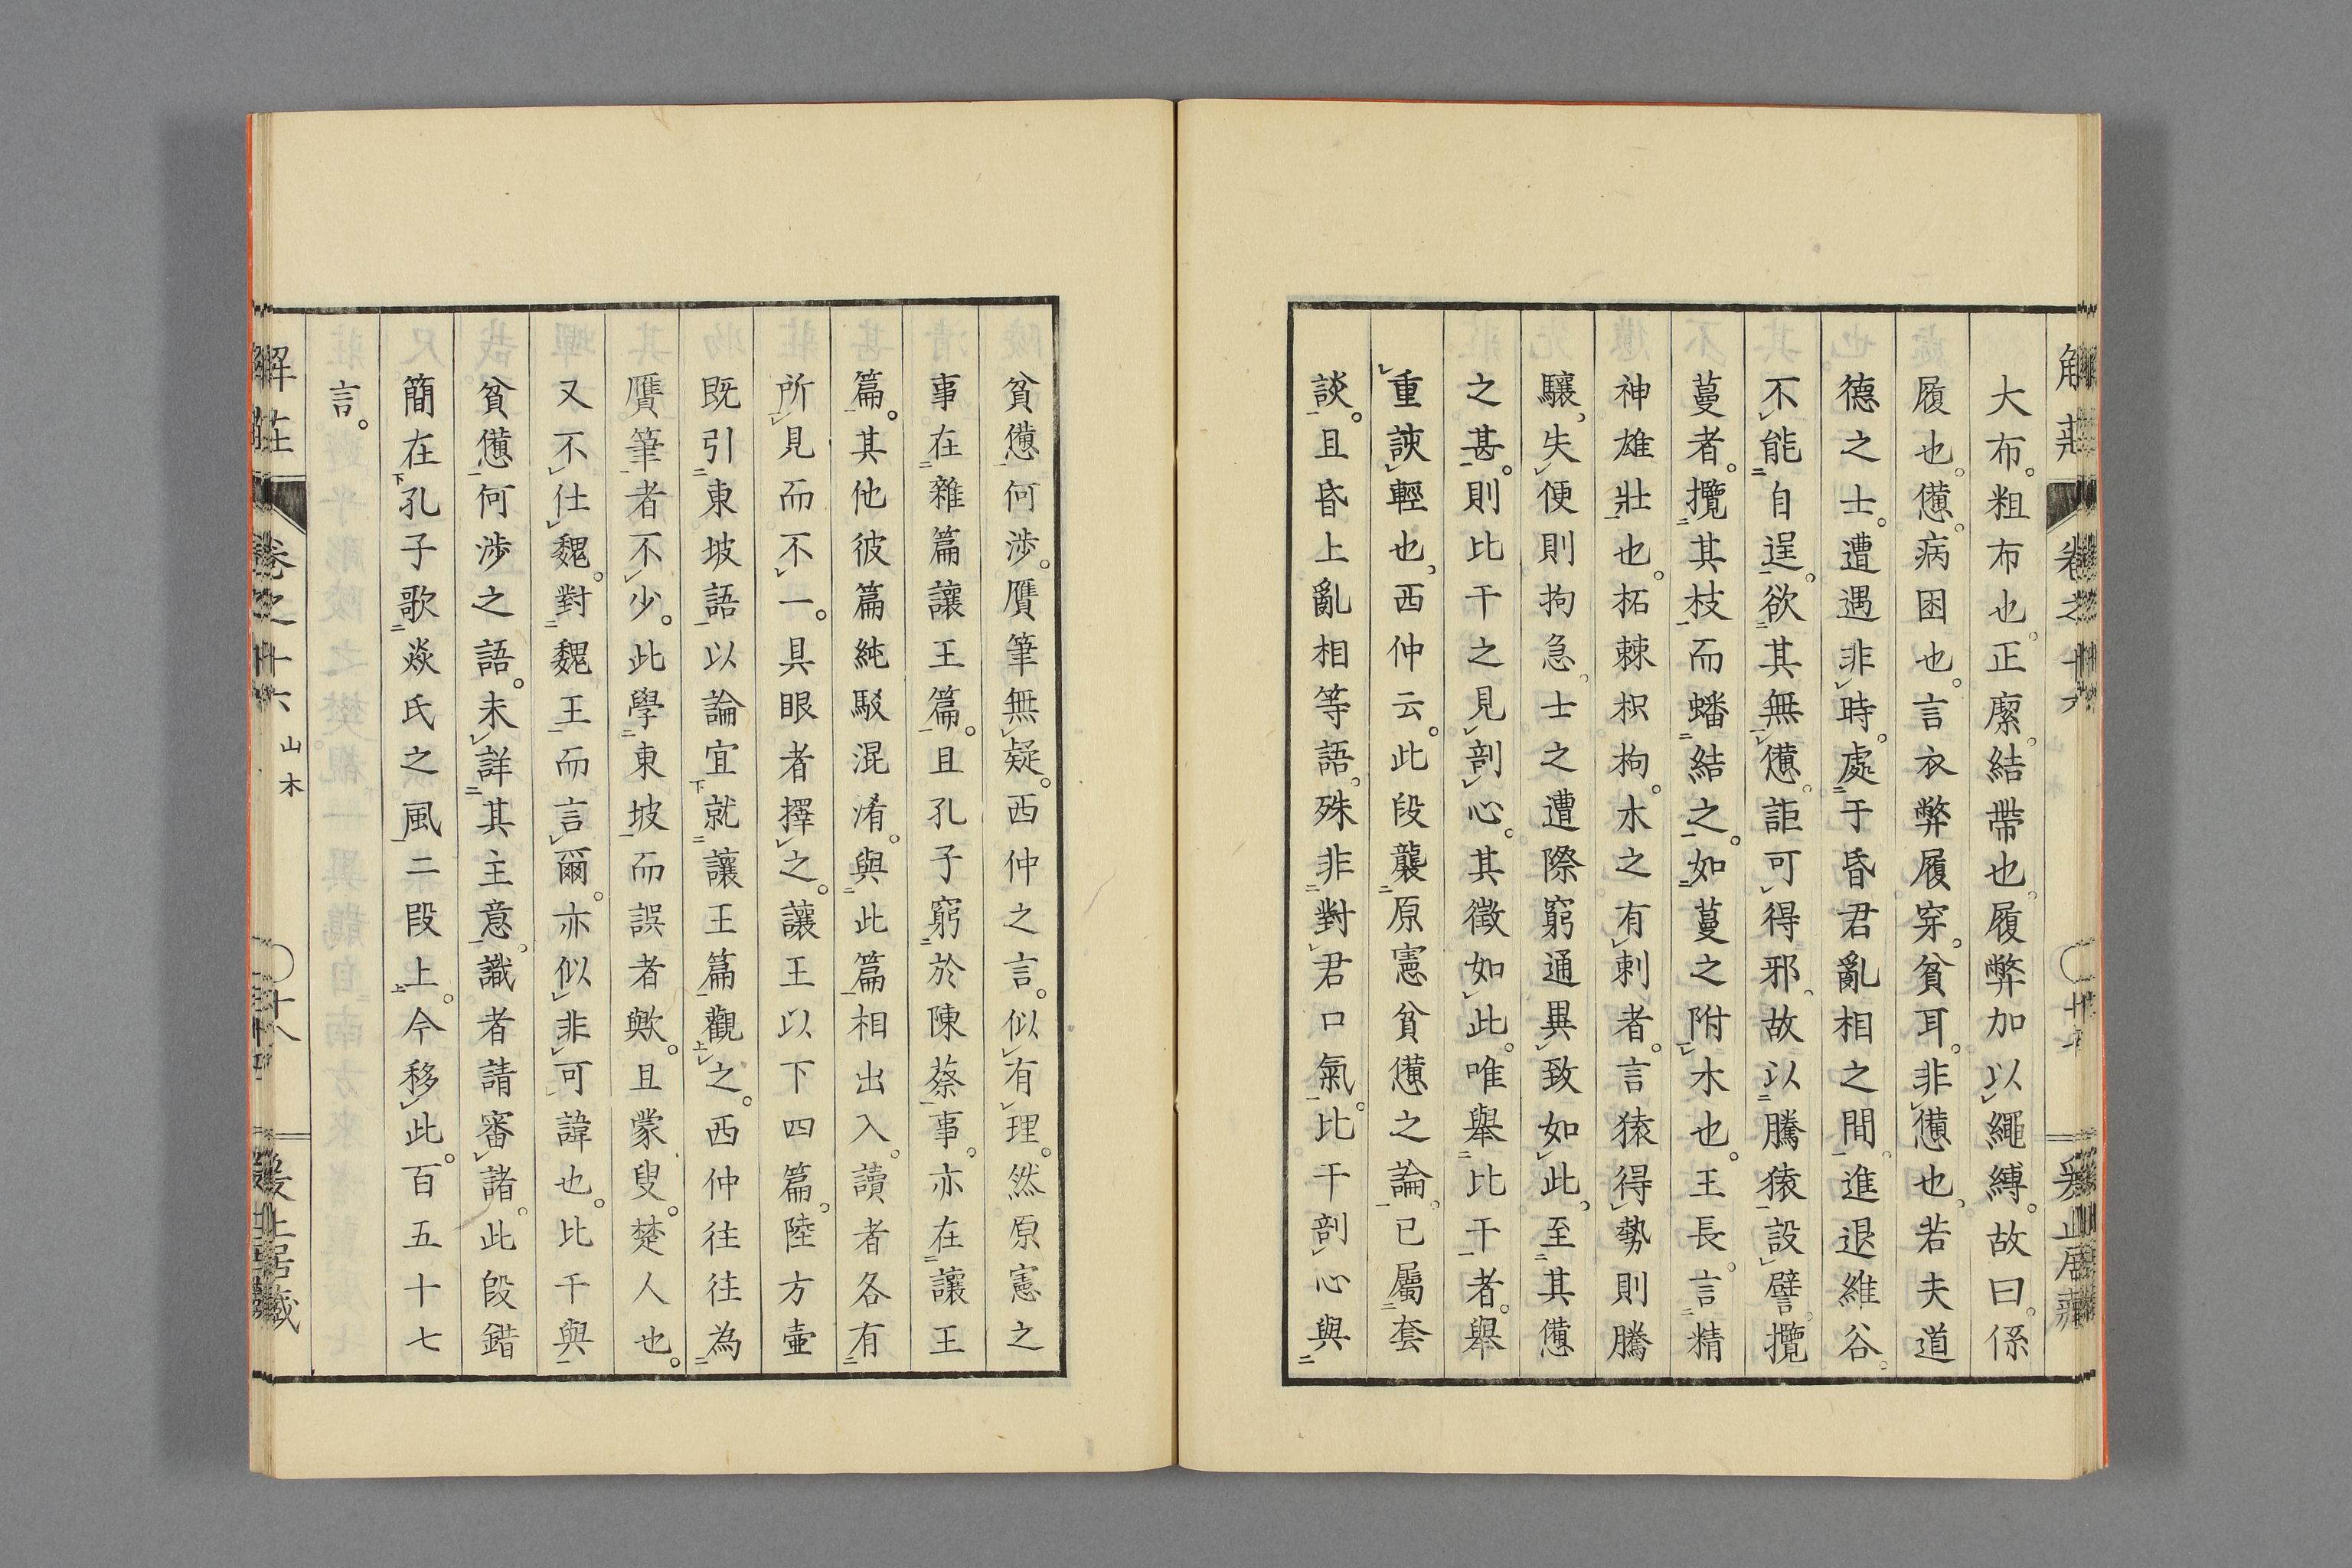 大布。粗布也。正緳。結帶也。履弊加以繩縛。故曰。係
履也。憊。病困也。言衣弊履穿。貧耳。非憊也。若夫道
德之士。遭遇非時。處于昏君亂相之間。進退維谷。
不能自逞。欲其無憊。詎可得邪。故以騰猿設譬。攬
蔓者。攬其枝而蟠結之。如蔓之附木也。王長。言精
神雄壯也。柘棘枳枸。木之有刺者。言猿得勢則騰
驤。失便則拘急。士之遭際窮通異致如此。至其憊
之甚。則比干之見剖心。其徵如此。唯舉比干者。舉
重諛輕也。西仲云。此段襲原憲貧憊之論。已屬套
談。且昏上亂相等語。殊非對君口氣。比干剖心與
貧憊何涉。贋筆無疑。西仲之言。似有理。然原憲之
事在雜篇讓王篇。且孔子窮於陳蔡事。亦在讓王
篇。其他彼篇純駁混淆。與此篇相出入。讀者各有
所見而不一。具眼者擇之。讓王以下四篇。陸方壺
既引東坡語以論宜就讓王篇觀之。西仲往往為
贋筆者不少。此學東坡而誤者歟。且蒙叟。楚人也。
又不仕魏。對魏王而言爾。亦似非可諱也。比干與
貧憊何涉之語。未詳其主意。識者請審諸。此段錯
簡在孔子歌焱氏之風二段上。今移此。百五十七
言。
解莊
卷之十六
山木
十八